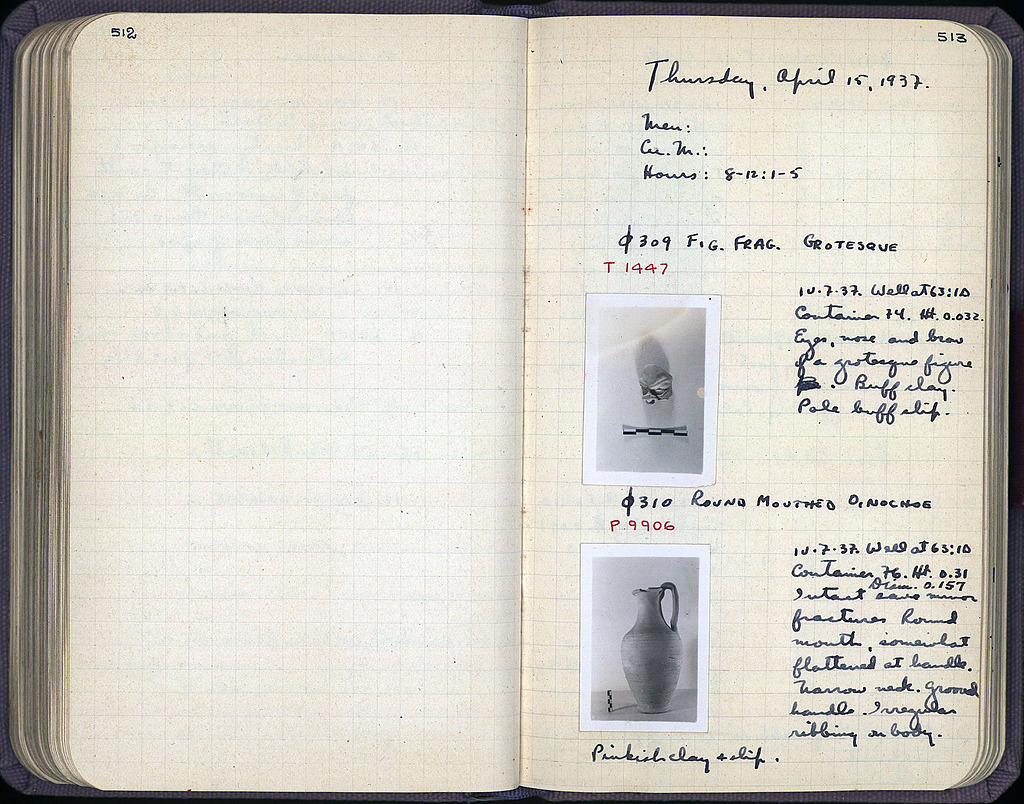 512
513
Thursday, April 15, 1937.
Men:
Cu. M.:
Hours: 8-12:1-5
ϕ309 FIG. FRAG. GROTESQUE
T 1447
Well at 63:ΙΟ
Container 74. Ht. 0.032.
Eyes, nose and brow
of a grotesque figure
. Buff clay.
Pale buff slip.
ϕ310 ROUND MOUTHED OINOCHOE
P 9906
Well at 63:ΙΟ
Container 76. Ht. 0.31
Diam. 0.157
Intact save minor
fractures Round
mouth, somewhat
flattened at handle.
Narrow neck. Grooved
handle. Irregular
ribbing on body.
Pinkish clay + slip.